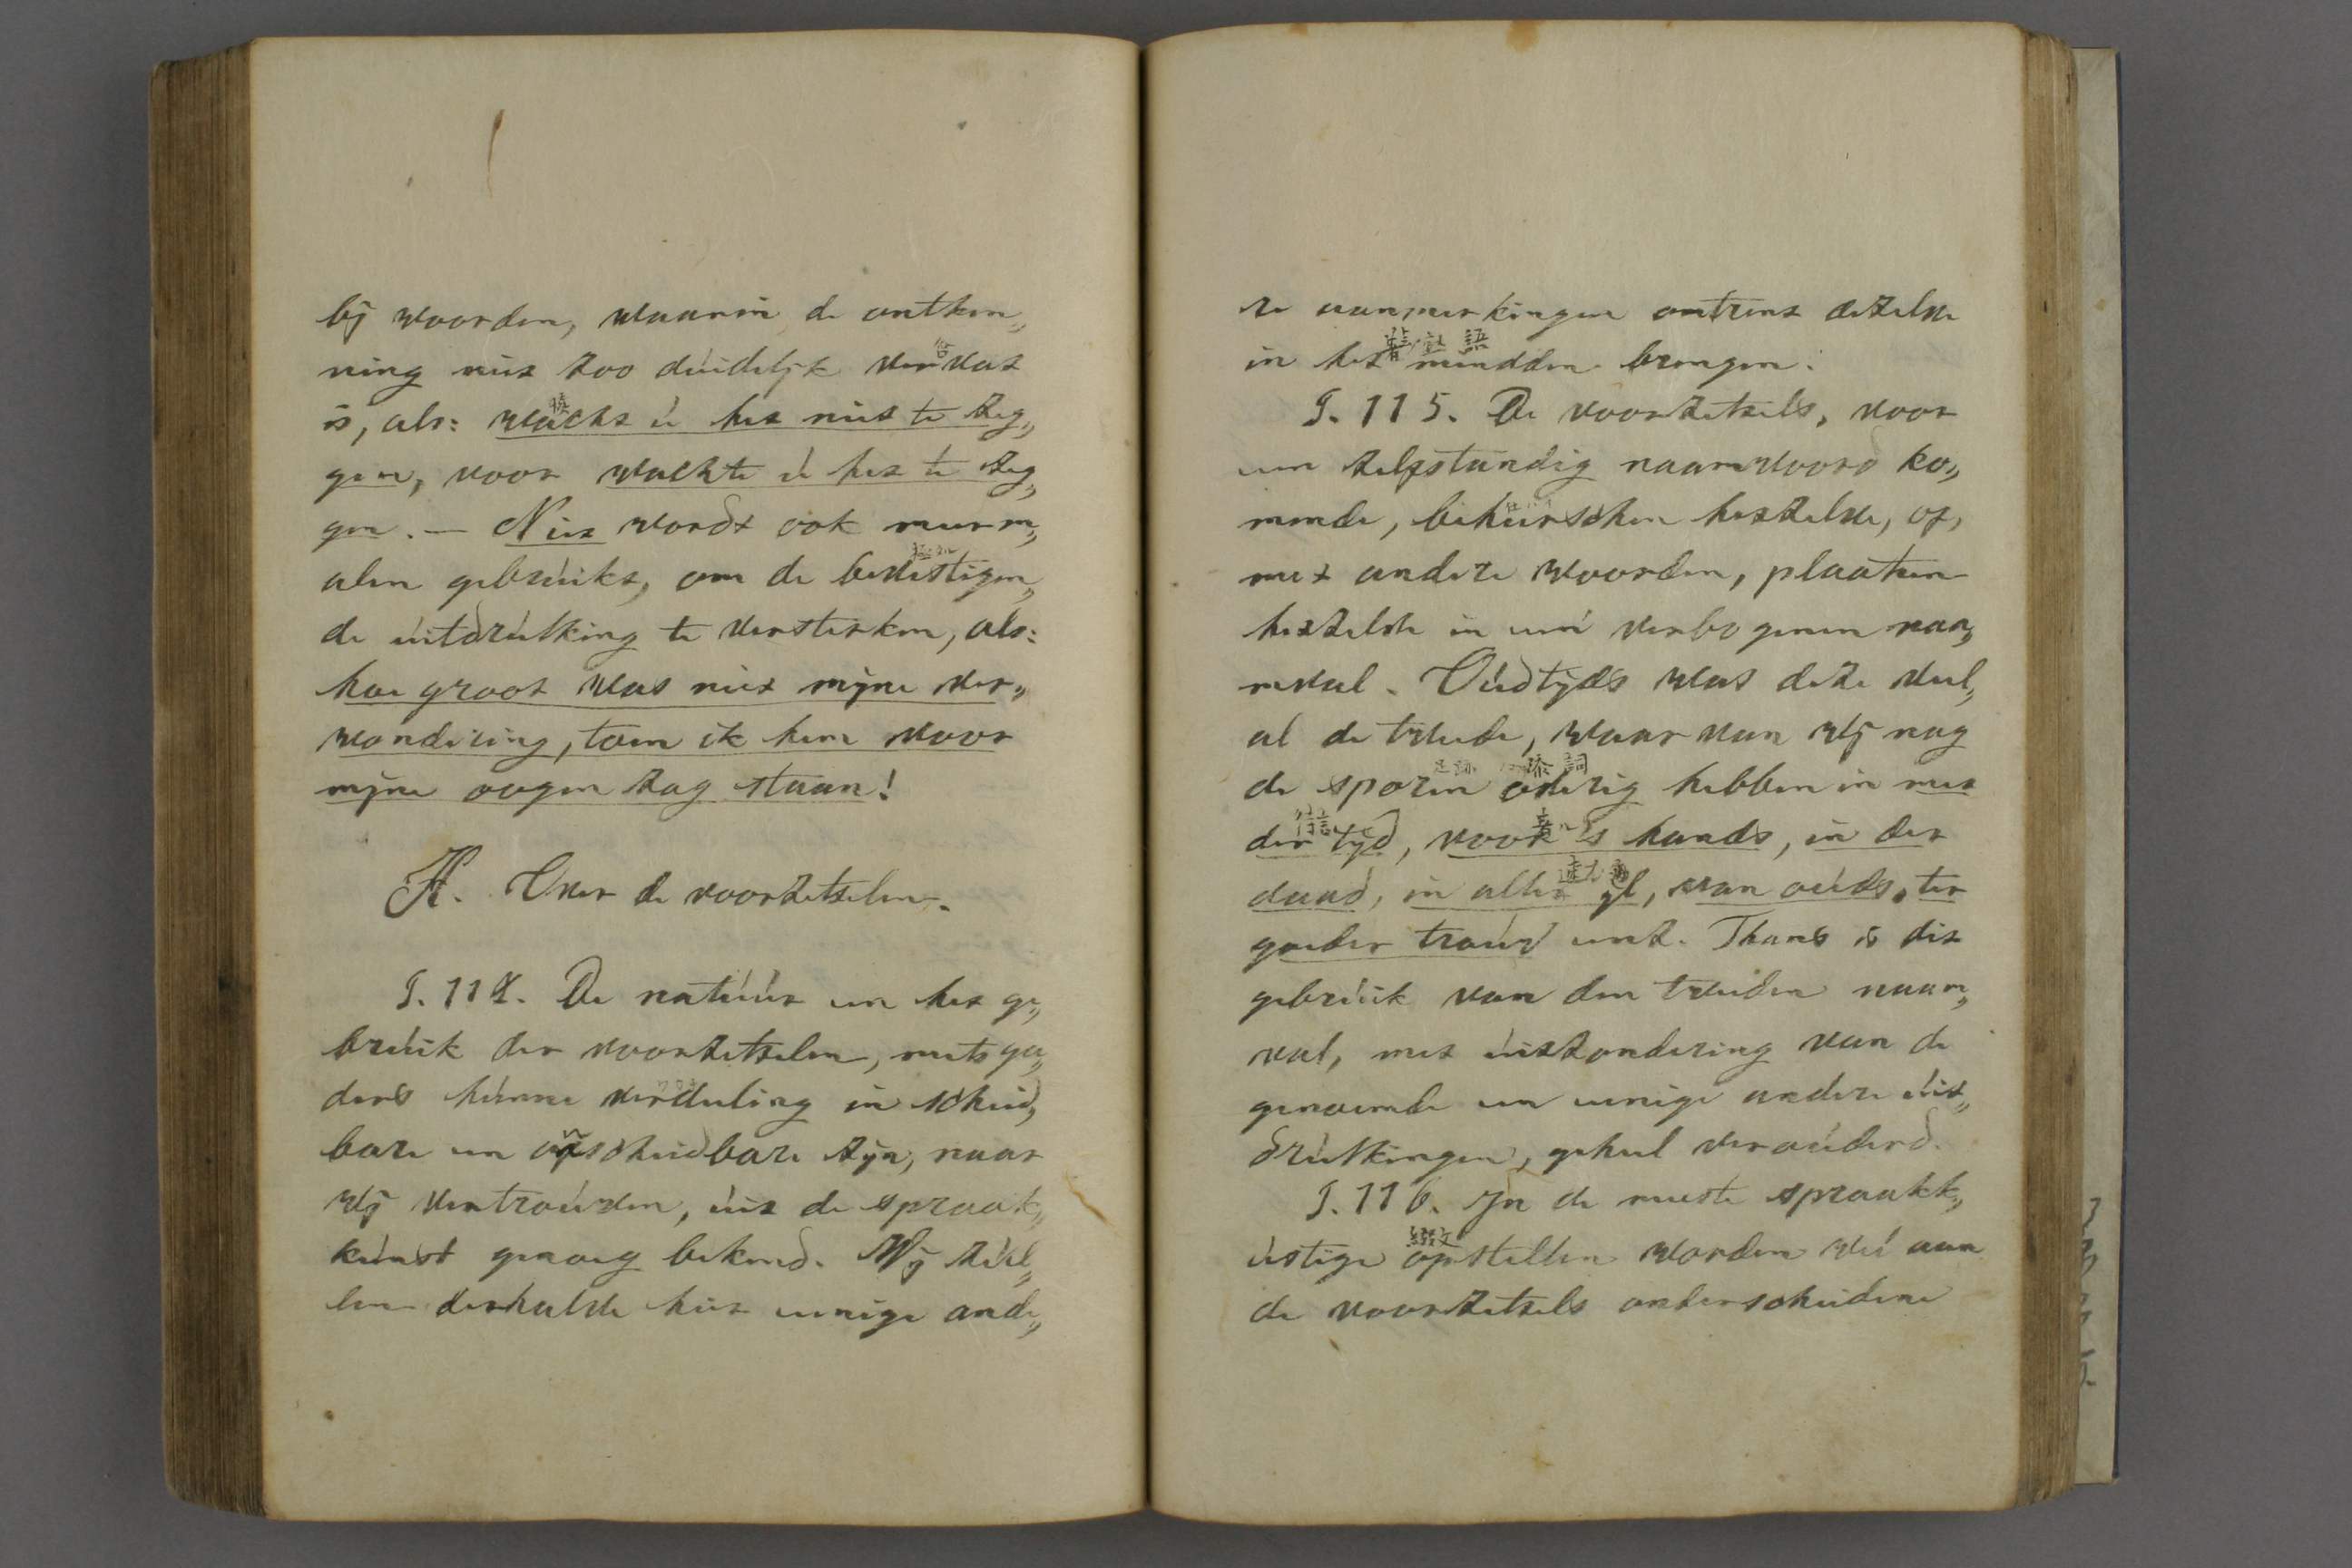 bij woorden, waarin de ontken„
ning niet zoo duidelijk vervat
is, als: wacht u het niet te zeg„
gen, voor wacht u het te zeg„
gen. — Niet wordt ook meerm„
alen gebruikt, om de bevestigen„
de uitdrukking te versterken, als:
hoe groot was niet mijne ver„
wondering, toen ik hem voor
mijne oogen zag staan!
H. Over de voorzetselen.
§. 114. De natuur en het ge„
bruik der voorzetselen, mitsga„
ders hunne verdeeling in scheid„
bare en onscheidbare zijn, naar
wij vertrouwen, uit de spraak„
kunst genoeg bekend. Wij zul„
len derhalve hier eenige ande„
re aanmerkingen omtrent dezelve
著述語
in het midden brengen.
§. 115. De voorzetsels, voor
een zelfstandig naamwoord ko„
mende, beheerschen hetzelve, of,
met andere woorden, plaatsen
hetzelve in een' verbogenen naa„
mval. Oudtijds was deze veel„
al de tweede, waar van wij nog
de sporen overig hebben in met
der tijd, voor 's hands, in der
daad, in aller yl, van ouds, ter
goeder trouw enz. Thans is dit
gebruik van den tweeden naam„
val, met uitzondering van de
genoemde en eenige andere uit„
drukkingen, geheel verouderd.
§. 116. In de meeste spraakk„
綴文
ustige opstellen worden wel aan
de voorzetsels onderscheidene